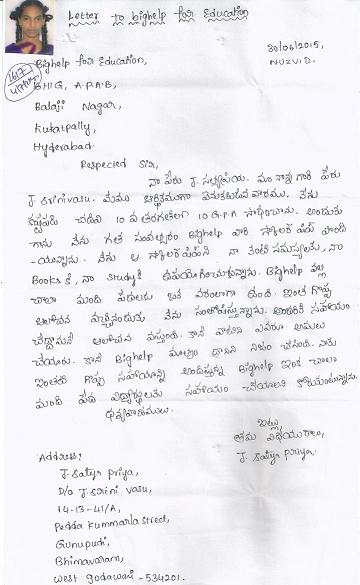 Letter to bighelp for Education
30/06/2015,
NUZVID.
Bighelp for Education,
BHIG, A.P.A.B,
Balaji Nagar,
Kukatpally,
Hyderabad.
Respected Sir,
నా పేరు J. సత్యప్రియ. మా నాన్న గారి పేరు
J. Srinivasu. మేము ఆర్థికముగా వెనుకబడిన వారము. నేను
కష్టపడి చదివి 10 వ తరగతిలో 10 G.P.A సాధించాను. అందుకు
గాను నేను గత సంవత్సరం Bighelp వారి స్కాలర్ షిప్ పొంది
-యున్నాను. నేను ఆ స్కాలర్ షిప్ ని నా
Books కి, నా Study కి ఉపయోగించుకున్నాను. Bighelp వల్ల
చాలా మంది పేదలకు ఒక వరంలాగా ఉంది. ఇంత గొప్ప
ఆలోచన వచ్చినందుకు నేను సంతోషిస్తున్నాను. అందరికి సహాయం
చేద్దామనే ఆలోచన వస్తుంది. కానీ వాటిని ఎవరూ అమలు
చేయరు. కానీ Bighelp మాత్రం దానిని నిజం చేసింది. నాకు
ఇంతటి గొప్ప సహాయాన్ని అందిస్తున్న Bighelp ఇంకా చాలా
మంది పేద విద్యార్థులకు సహాయం చేయాలని కోరుకుంటున్నాను.
ధన్యవాదములు.
ఇట్లు
తమ విధేయురాలు,
J. Satya Priya.
Address:
J. Satya Priya,
D/o J. Srini Vasu,
14-13-41/A,
Pedda Kummarla Street,
Gunupudi,
Bhimavaram,
West Godavari - 534201.